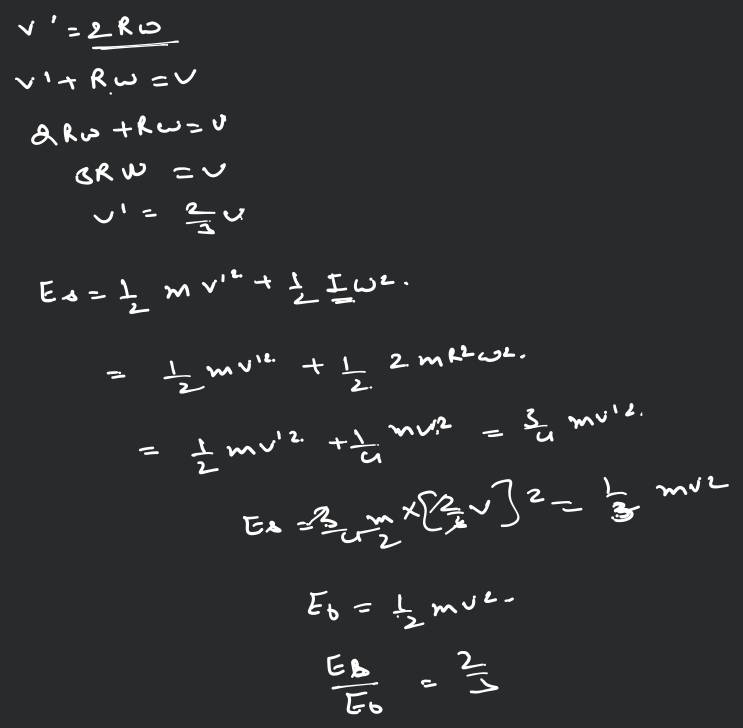 v' = 2Rω
v' + Rω = v
2Rω + Rω = v
3Rω = v
v' = 2/3 v
Es = 1/2 mv'² + 1/2 Iω².
= 1/2 mv'² + 1/2 2mR²ω².
= 1/2 mv'² + 1/4 mv'² = 3/4 mv'².
Es = 3/4 m/2 × [2/3 v]² = 1/3 mv²
E₀ = 1/2 mv².
Es/E₀ = 2/3